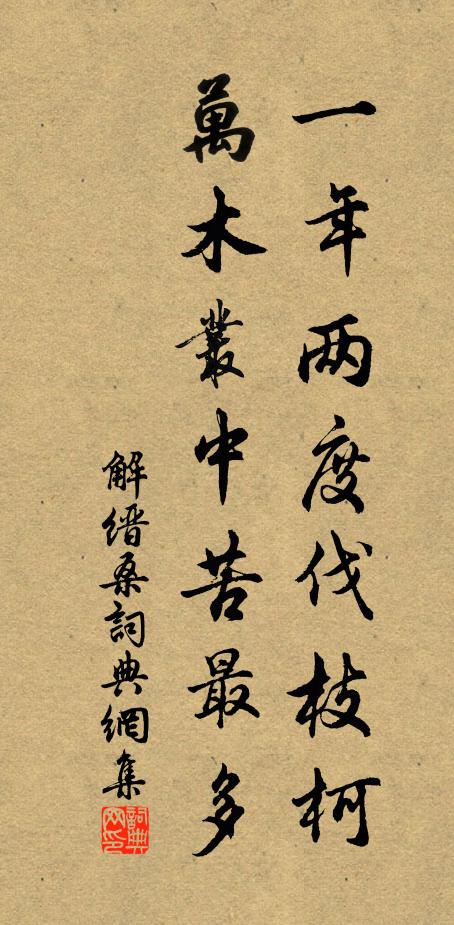 一年两度伐枝柯
萬木叢中苦最多
解縉桑詞典網集
詞典网印